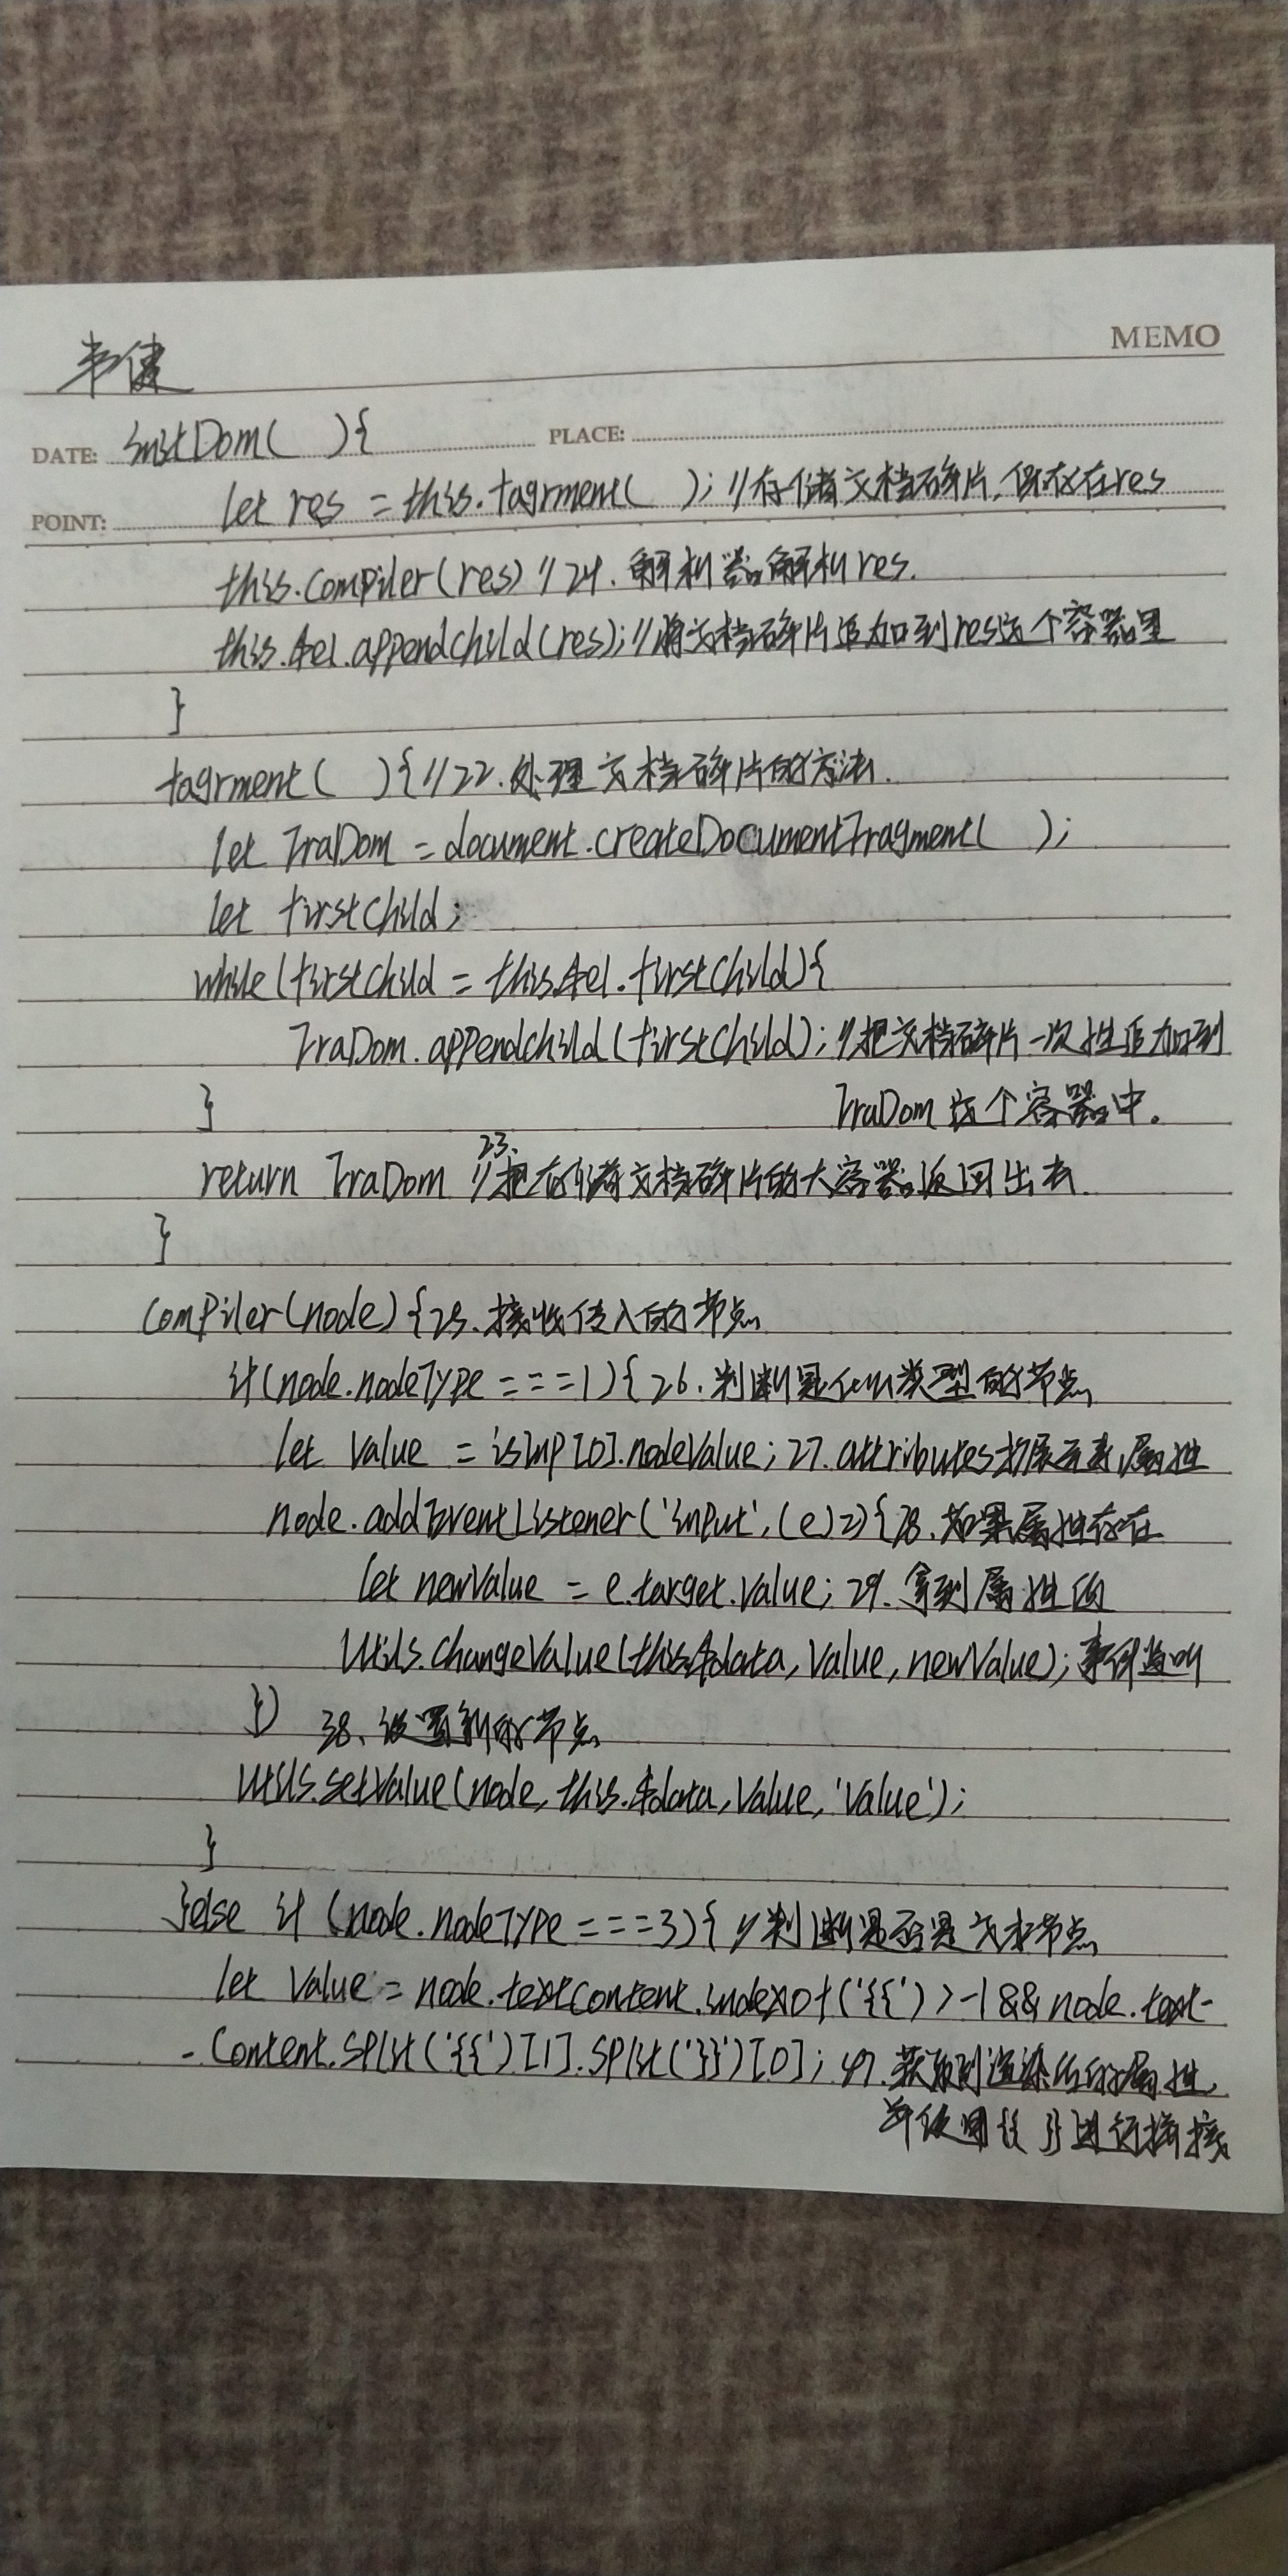 韦健
MEMO
DATE: initDom( ){ PLACE:
POINT: let res = this.fagrment( ); //存储文档碎片,保存在res
this.compiler(res) //24. 解析器解析res.
this.$el.appendChild(res); //将文档碎片追加到res这个容器里
}
fagrment( ){ //22.处理文档碎片的方法.
let FraDom = document.createDocumentFragment( );
let firstChild;
while(firstChild = this.$el.firstChild){
FraDom.appendChild(firstChild); //把文档碎片一次性追加到
} FraDom这个容器中。
return FraDom //23.把存储着文档碎片的大容器返回出去
}
compiler(node){25.接收传入的节点
if(node.nodeType ===1){ 26.判断是什么类型的节点
let value = isInp[0].nodeValue; 27.attributes扩展元素属性
node.addEventListener('input',(e)=>{28.如果属性存在
let newValue = e.target.value; 29.拿到属性值
Utils.changeValue(this.$data,value,newValue);事件监听
}) 38、设置新的节点
Utils.setValue(node,this.$data,value,'value');
}
}else if (node.nodeType ===3){ //判断是否是文本节点
let value = node.textContent.indexOf('{{') >-1 && node.text-
-Content.split('{{')[1].split('}}')[0]; 47.获取到渲染的属性,
并使用{{ }}进行拼接